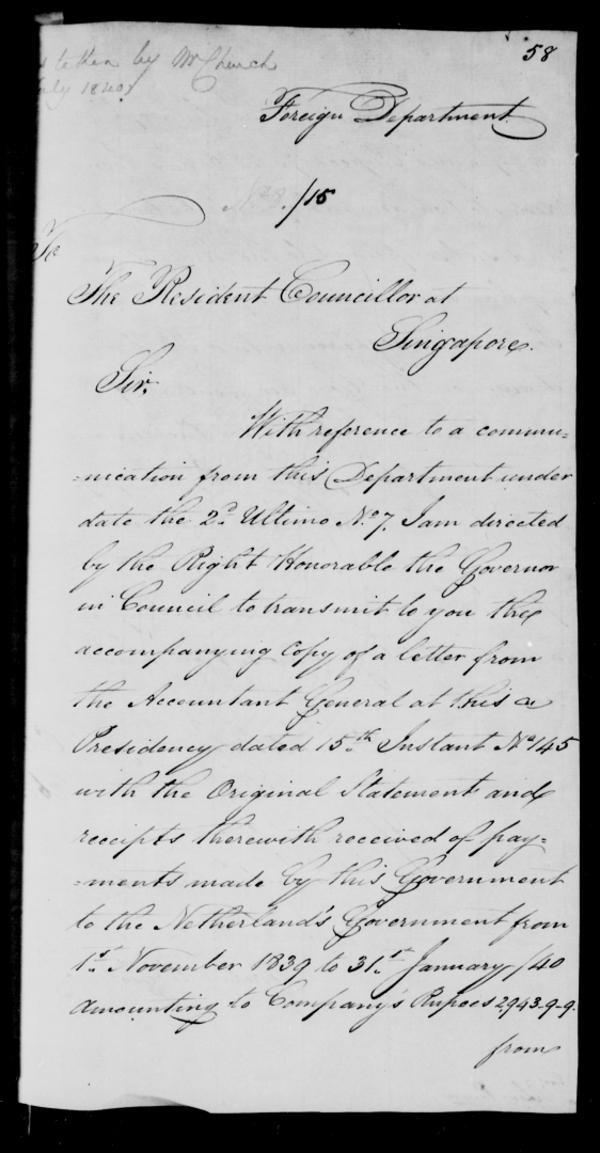 58
taken by Mr Church
July 1840
Foreign Department.
/15
To
The Resident Councillor at
Singapore.
Sir,
With reference to a commu=
=nication from this Department under
date the 2d. Ultimo No. 7. I am directed
by the Right Honorable the Governor
in Council to transmit to you the
accompanying Copy of a letter from
the Accountant General at this
Presidency dated 15th. Instant No 145
with the Original Statement and
receipts therewith received of pay=
=ments made by this Government
to the Netherland's Government from
1st. November 1839 to 31st. January /40
amounting to Company's Rupees 2,943-9-9.
from